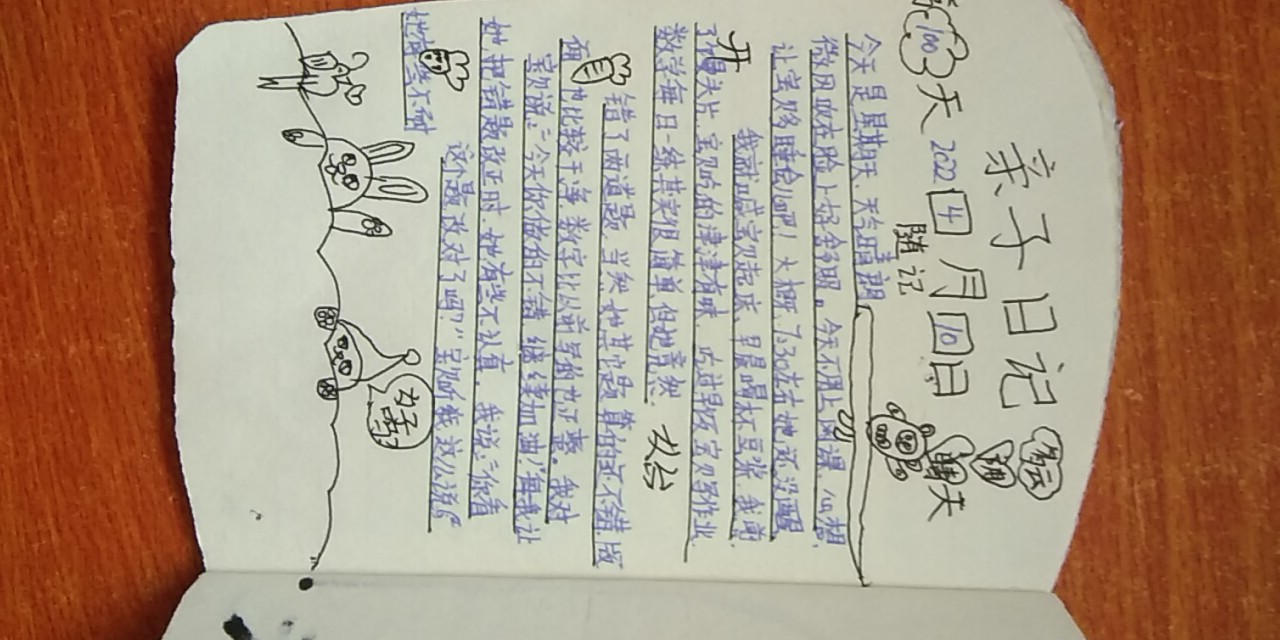 亲子日记
多云
晴
第100天 2022 4月10日
随记
今天是星期天,天气晴朗
微风吹在脸上好舒服。今天不用上网课,心想
让宝贝多睡会儿吧!大概7:30左右她还没醒
我就喊宝贝起床,早晨喝杯豆浆,我煎
了馒头片,宝贝吃的津津有味,吃过早饭宝贝写作业
数学每日一练其实很简单,但她竟然
错了两道题,当然她其它题算的还不错,版
面也比较干净,数字比以前写的也正意。我对
宝贝说:“今天你做的不错,继续加油!”每我让
她把错题改正时,她有些不认真,我说:“你看
这个题改对了吗?”宝贝听我这么说
她有些不耐
加油